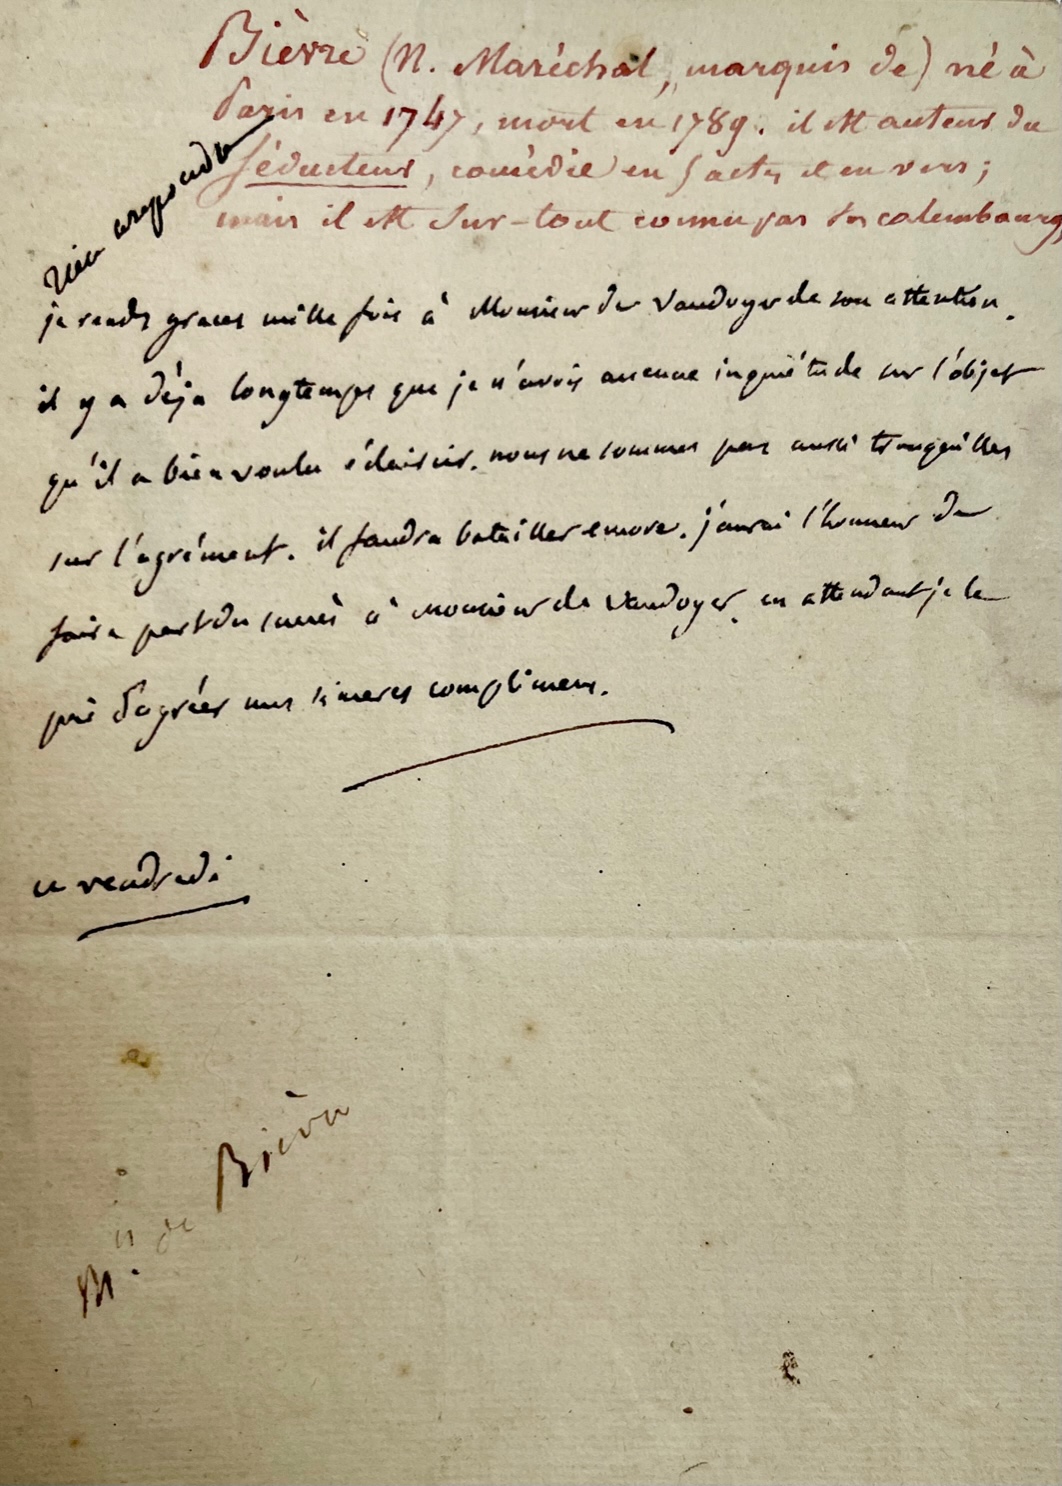 Bièvre (N. Maréchal, marquis de) né à
Paris en 1747, mort en 1789. il est auteur du
Séducteur, comédie en 5 actes et en vers;
mais il est sur-tout connu par ses calembourgs
rien a repondre
je rends graces mille fois à Monsieur de Vaudoyer de son attention.
il y a déja longtemps que je n'avois aucune inquiétude sur l'objet
qu'il a bien voulu éclaircir. nous ne sommes pas aussi tranquilles
sur l'agrément. il faudra batailler encore. j'aurai l'honneur de
faire part du succès à monsieur de Vaudoyer. en attendant je le
prie d'agréer mes sinceres complimens.
ce vendredi
M.is de Bièvre